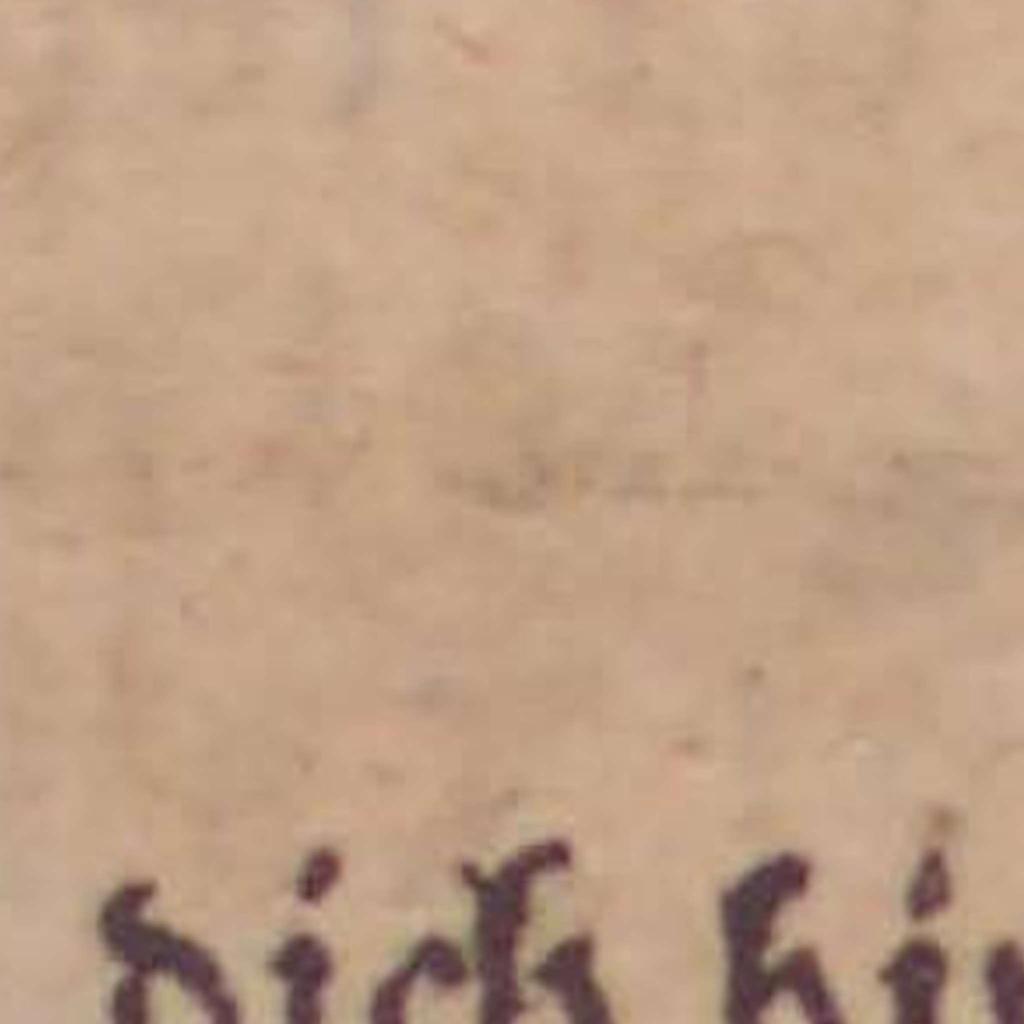 dich hin